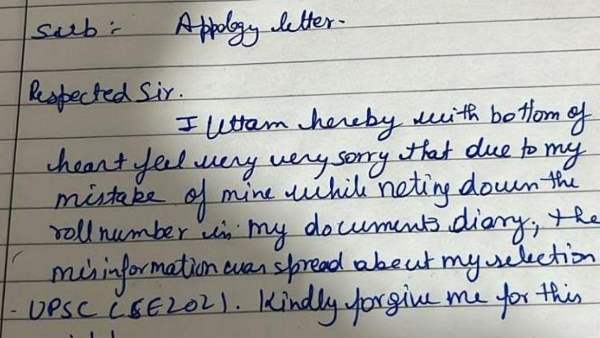 Sub:- Appology letter.
Respected Sir.
I Uttam hereby with bottom of
heart feel very very sorry that due to my
mistake of mine while noting down the
roll number in my documents diary, the
misinformation was spread about my selection
UPSC CSE2021. Kindly forgive me for this